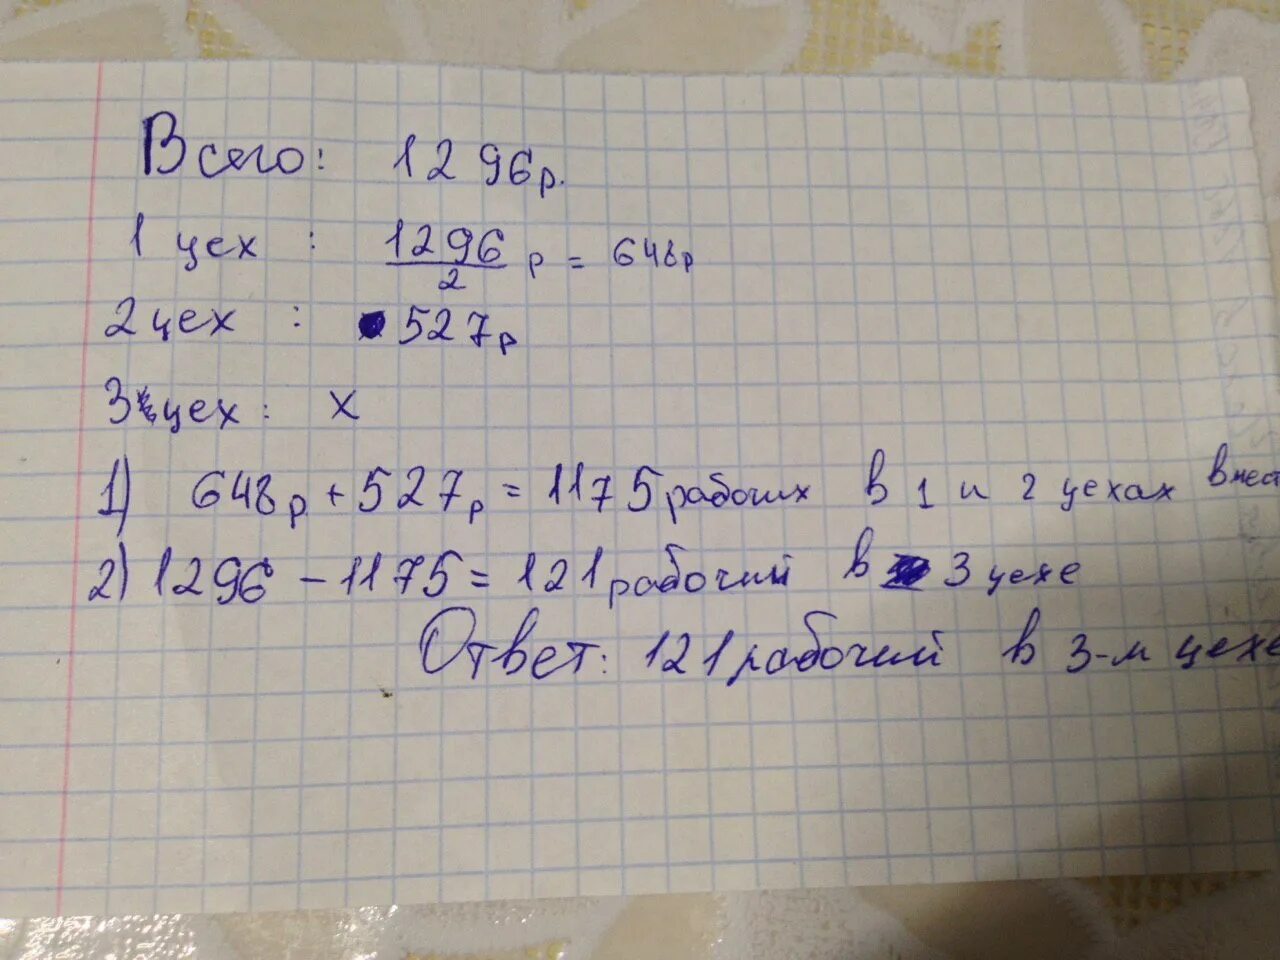 Всего: 1296р.
1 цех : 1296/2 р = 648р
2 цех : 527р
3 цех : х
1) 648р + 527р = 1175 рабочих в 1 и 2 цехах вмест
2) 1296 - 1175 = 121 рабочий в 3 цехе
Ответ: 121 рабочий в 3-м цехе